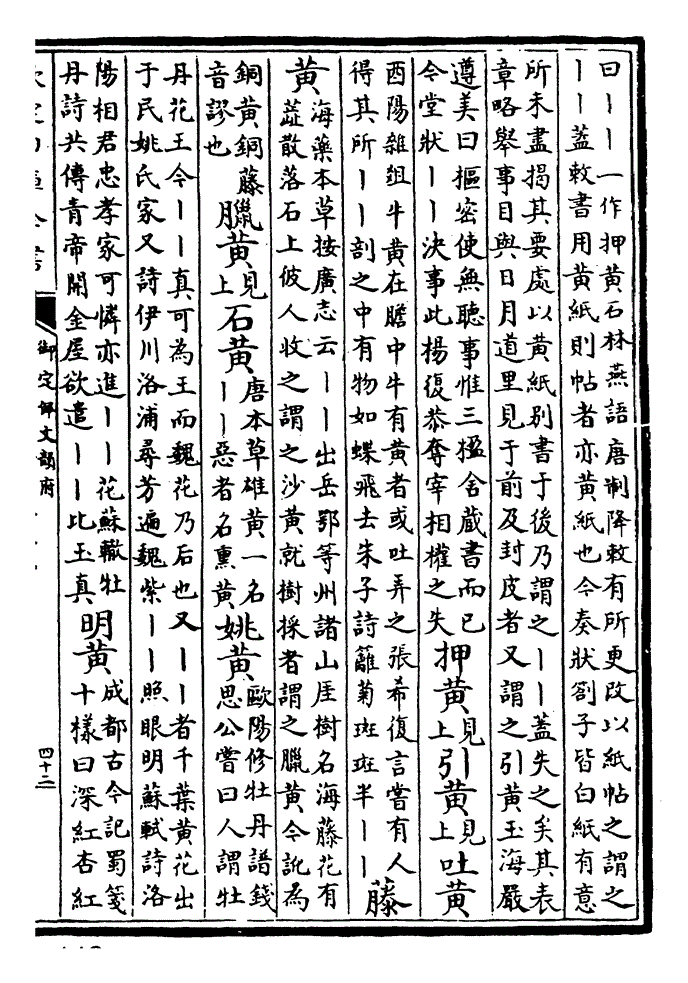 曰丨丨一作押黃石林燕語唐制降敕有所更改以紙帖之謂之
丨丨葢敕書用黃紙則帖者亦黃紙也今奏狀劄子皆白紙有意
所未盡揭其要處以黃紙别書于後乃謂之丨丨葢失之矣其表
章略舉事目與日月道里見于前及封皮者又謂之引黃玉海嚴
遵美曰樞密使無聽事惟三楹舍藏書而已
令堂狀丨丨決事此楊復恭奪宰相權之失
押黃
見上
引黃
見上
吐黃
酉陽雜俎牛黃在膽中牛有黃者或吐弄之張希復言嘗有人
得其所丨丨剖之中有物如蝶飛去朱子詩籬菊斑斑半丨丨
藤
黃
海藥本草按廣志云丨丨出岳鄂等州諸山厓樹名海藤花有
蘂散落石上彼人收之謂之沙黃就樹採者謂之臘黃今訛為
銅黃銅藤
音謬也
臘黃
見上
石黃
唐本草雄黃一名
丨丨惡者名熏黃
姚黃
歐陽修牡丹譜錢
思公嘗曰人謂牡
丹花王今丨丨真可為王而魏花乃后也又丨丨者千葉黃花出
于民姚氏家又詩伊川洛浦尋芳遍魏紫丨丨照眼明蘇軾詩洛
陽相君忠孝家可憐亦進丨丨花蘇轍牡
丹詩共傳青帝開金屋欲遣丨丨比玉真
明黃
成都古今記蜀箋
十樣曰深紅杏紅
御定佩文韻府
四十二